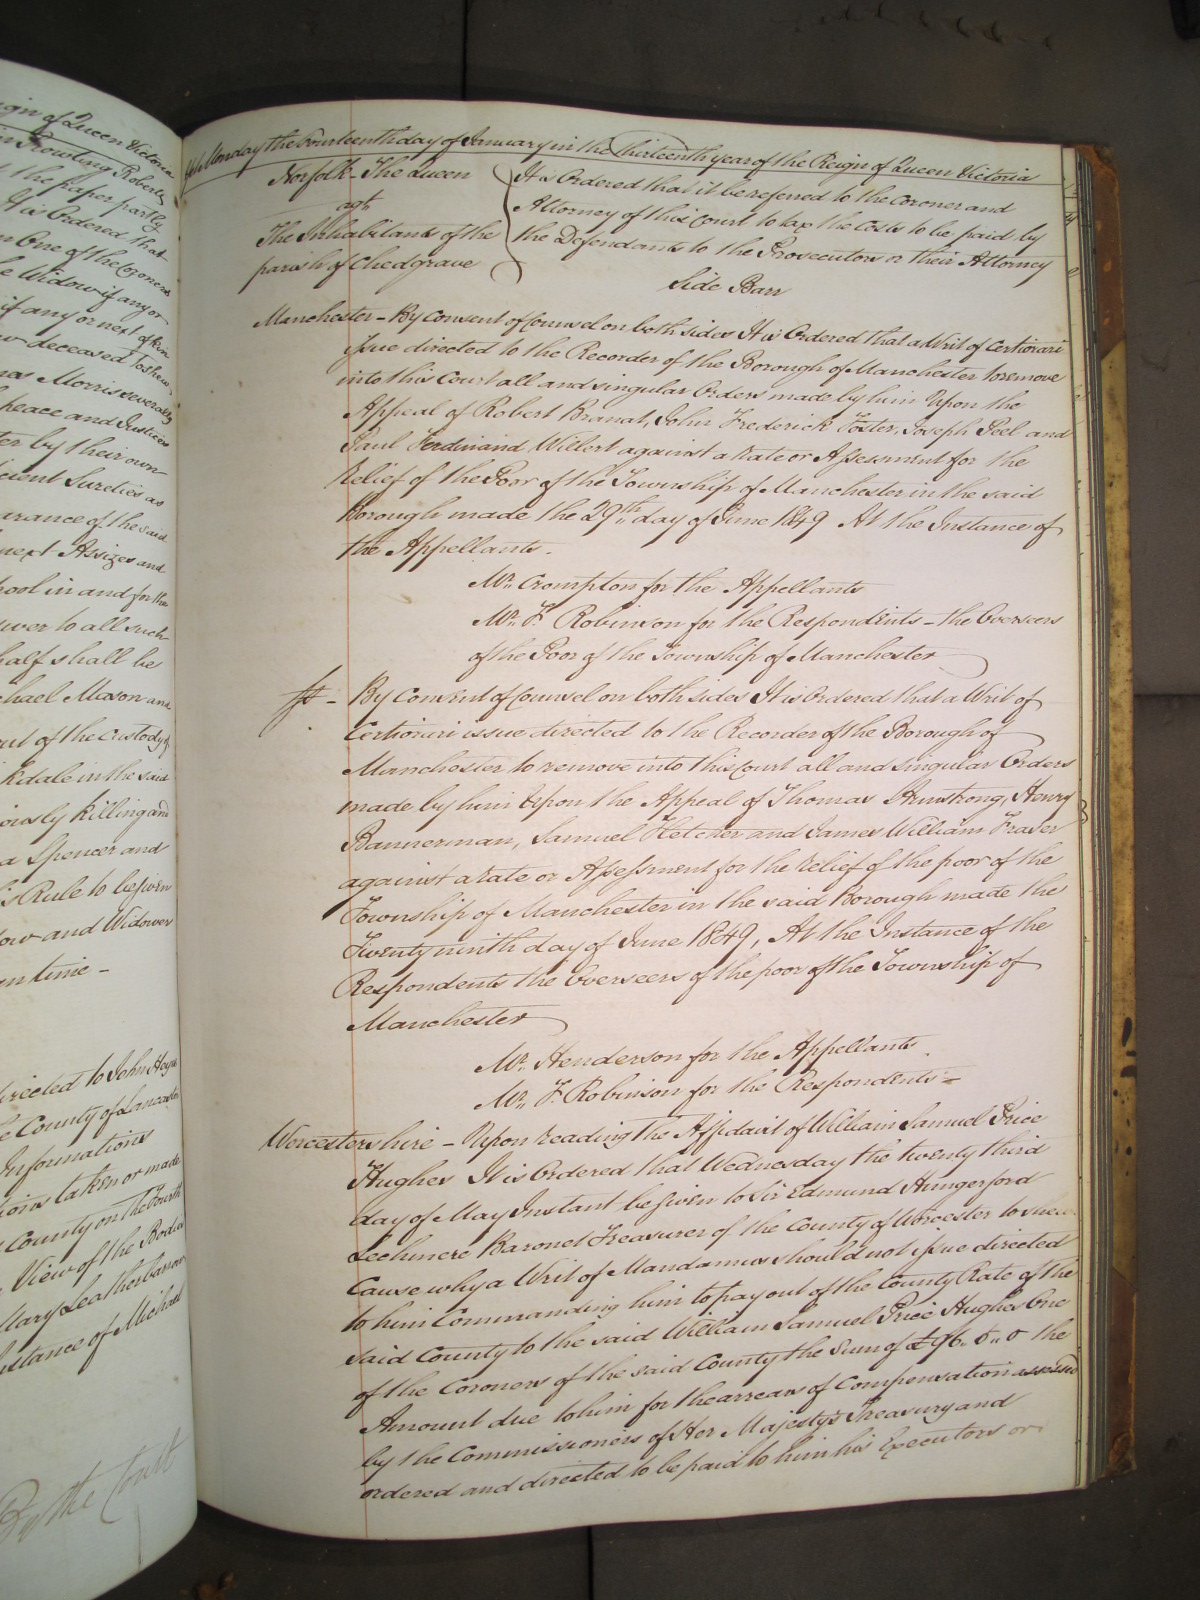 eign of Queen Victoria
in Rowling Roberts
& the paper partly
It is Ordered that
m One of the Coroners
e Widow if any or
if any or next of kin
w deceased Toshew
mes Morris severally
peace and Justices
ter by their own
cient Sureties as
arance of the said
next Assizes and
pool in and for the
swer to all such
half shall be
chael Mason and
out of the custody of
kdale in the said
iously killing and
a Spencer and
is Rule to be given
ow and Widower
an time -
irected to John Heyes
e County of Lancaster
Informations
ions taken or made
County on the Fourth
View of the Bodies
Mary Leatherbarrow
nstance of Michael
By the Court
Monday the Fourteenth day of January in the Thirteenth year of the Reign of Queen Victoria
Norfolk - The Queen
agt
The Inhabitants of the
parish of Chedgrave
It is Ordered that it be referred to the Coroner and
Attorney of this Court to tax the Costs to be paid by
the Defendants to the Prosecutors or their Attorney
Side Barr
Manchester - By Consent of Counsel on both sides It is Ordered that a Writ of Certiorari
issue directed to the Recorder of the Borough of Manchester to remove
into this Court all and singular Orders made by him Upon the
Appeal of Robert Brandt, John Frederick Foster, Joseph Peel and
Paul Ferdinand Willert against a Rate or Assessment for the
Relief of the Poor of the Township of Manchester in the said
Borough made the 29th day of June 1849 At the Instance of
the Appellants.
Mr. Crompton for the Appellants
Mr. F. Robinson for the Respondents - the Overseers
of the Poor of the Township of Manchester
St - By Consent of Counsel on both sides It is Ordered that a Writ of
Certiorari issue directed to the Recorder of the Borough of
Manchester to remove into this Court all and singular Orders
made by him Upon the Appeal of Thomas Armstrong, Henry
Bannerman, Samuel Fletcher and James William Frazer
against a Rate or Assessment for the relief of the poor of the
Township of Manchester in the said Borough made the
Twenty ninth day of June 1849, At the Instance of the
Respondents the Overseers of the poor of the Township of
Manchester
Mr. Henderson for the Appellants
Mr. F Robinson for the Respondents =
Worcestershire - Upon reading the Affidavit of William Samuel Price
Hughes It is Ordered that Wednesday the twenty third
day of May Instant be given to Sir Edmund Hungerford
Lechmere Baronet Treasurer of the County of Worcester to shew
Cause why a Writ of Mandamus should not issue directed
to him Commanding him to pay out of the County Rate of the
said County to the said William Samuel Price Hughes One
of the Coroners of the said County the Sum of £96. 5.. 0 the
Amount due to him for the arrears of Compensation assessed
by the Commissioners of Her Majesty's Treasury and
ordered and directed to be paid to him his Executors or